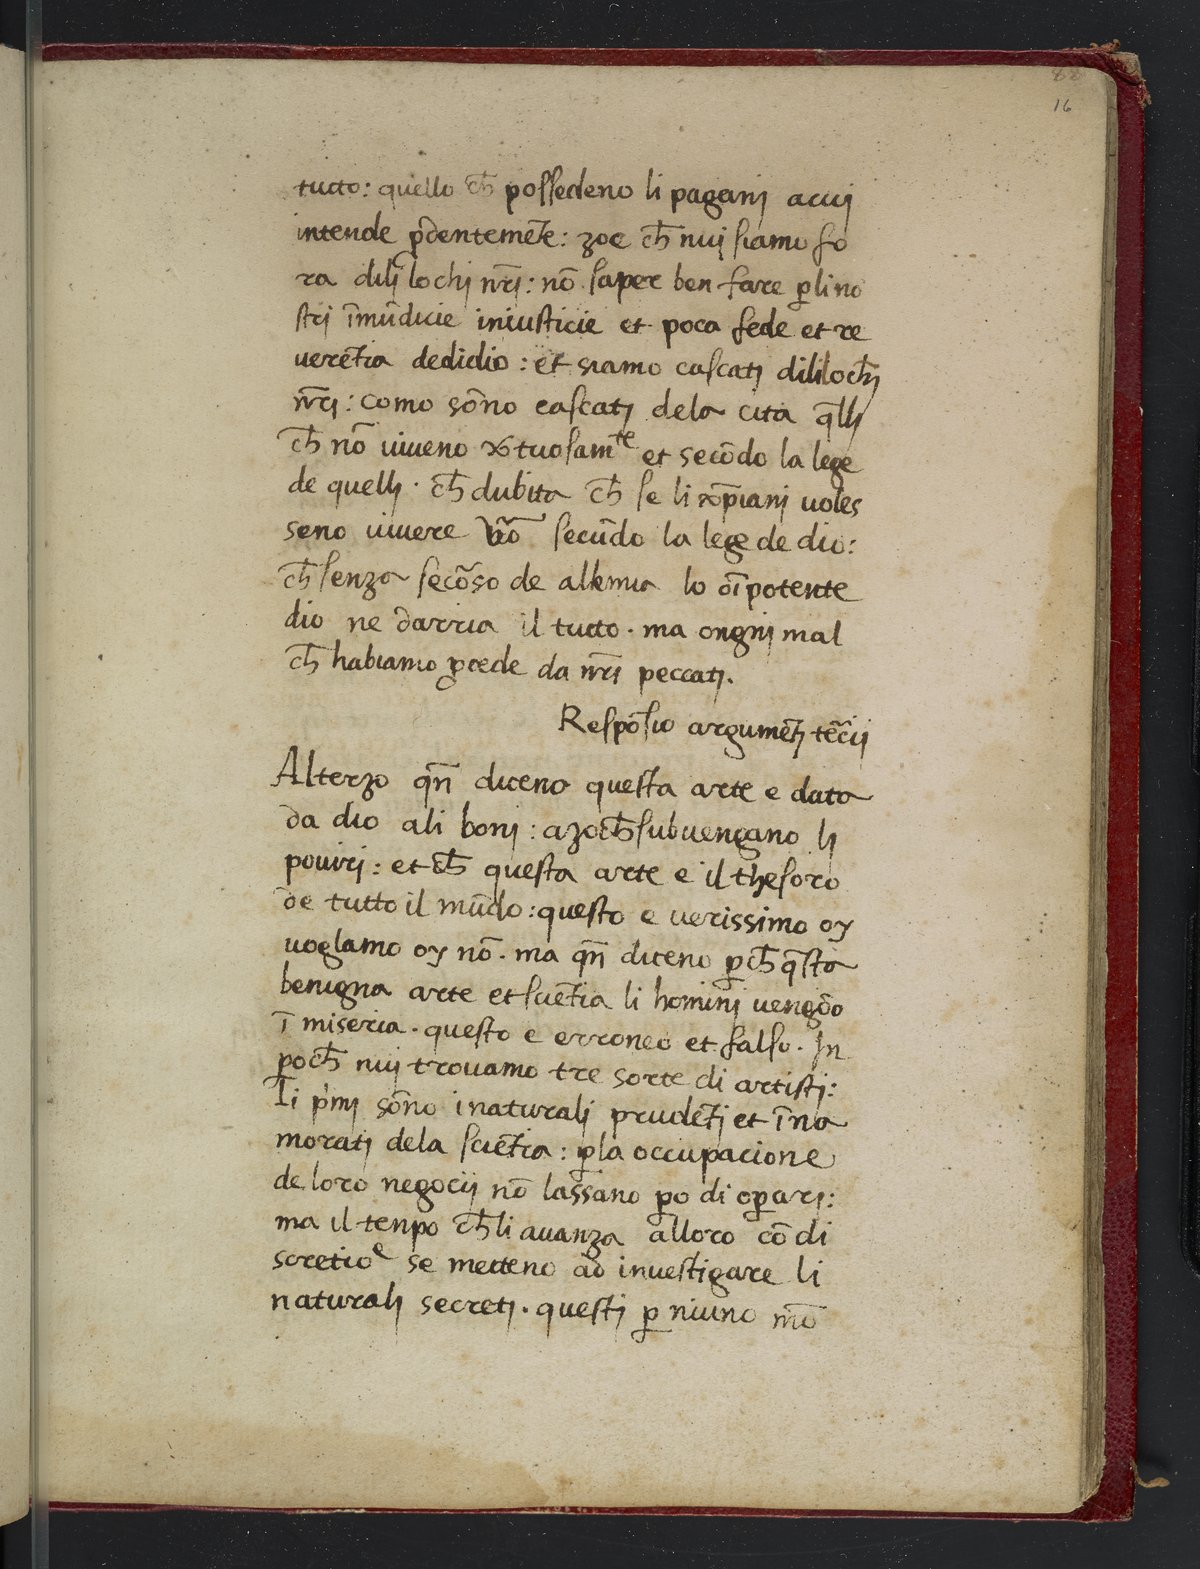 88
16
tutto: quello ch̄ possedeno li paganj acuj
intende p̄dentemēte: zoe ch̄ nuj siamo fo
ra dilj lochj nr̄j: nō saper ben fare ꝑ li no
strj īmūdicie iniusticie et poca fede et re
verētia dedidio: et siamo cascatj dili lochj
nr̄j: como sōno cascatj dela cita q̄llj
ch̄ nō viveno xtuosamᵗᵉ et secōdo la lege
de quellj. ch̄ dubita ch̄ se li xp̄ianj voles
seno vivere secūdo la lege de dio:
ch̄ senza de lo oīpotente
dio ne darria il tutto. ma ongnj mal
ch̄ habiamo ꝓcede da nr̄j peccatj.
Respōsio argumētj tēcij
Alterzo qn̄ diceno questa arte e data
da dio ali bonj: azoch̄ subvengano lj
povirj: et ch̄ questa arte e il thesoro
de tutto il mūdo: questo e verissimo oy
voglamo oy nō. ma qn̄ diceno ꝑch̄ q̄sta
benigna arte et sciētia li hominj vengōo
ī miseria. questo e erroneo et falso. In
ꝑoch̄ nuj trovamo tre sorte di artistj:
Li p̄mj sōno i naturalj prudētj et īna
moratj dela sciētia: ꝑ la occupacione
de loro negocij nō lassano ꝑo di oꝑarj:
ma il tenpo ch̄ li avanza alloro cō di
scretioᵉ se metteno ad investigare li
naturalj secretj. questj ꝑ niuno mō